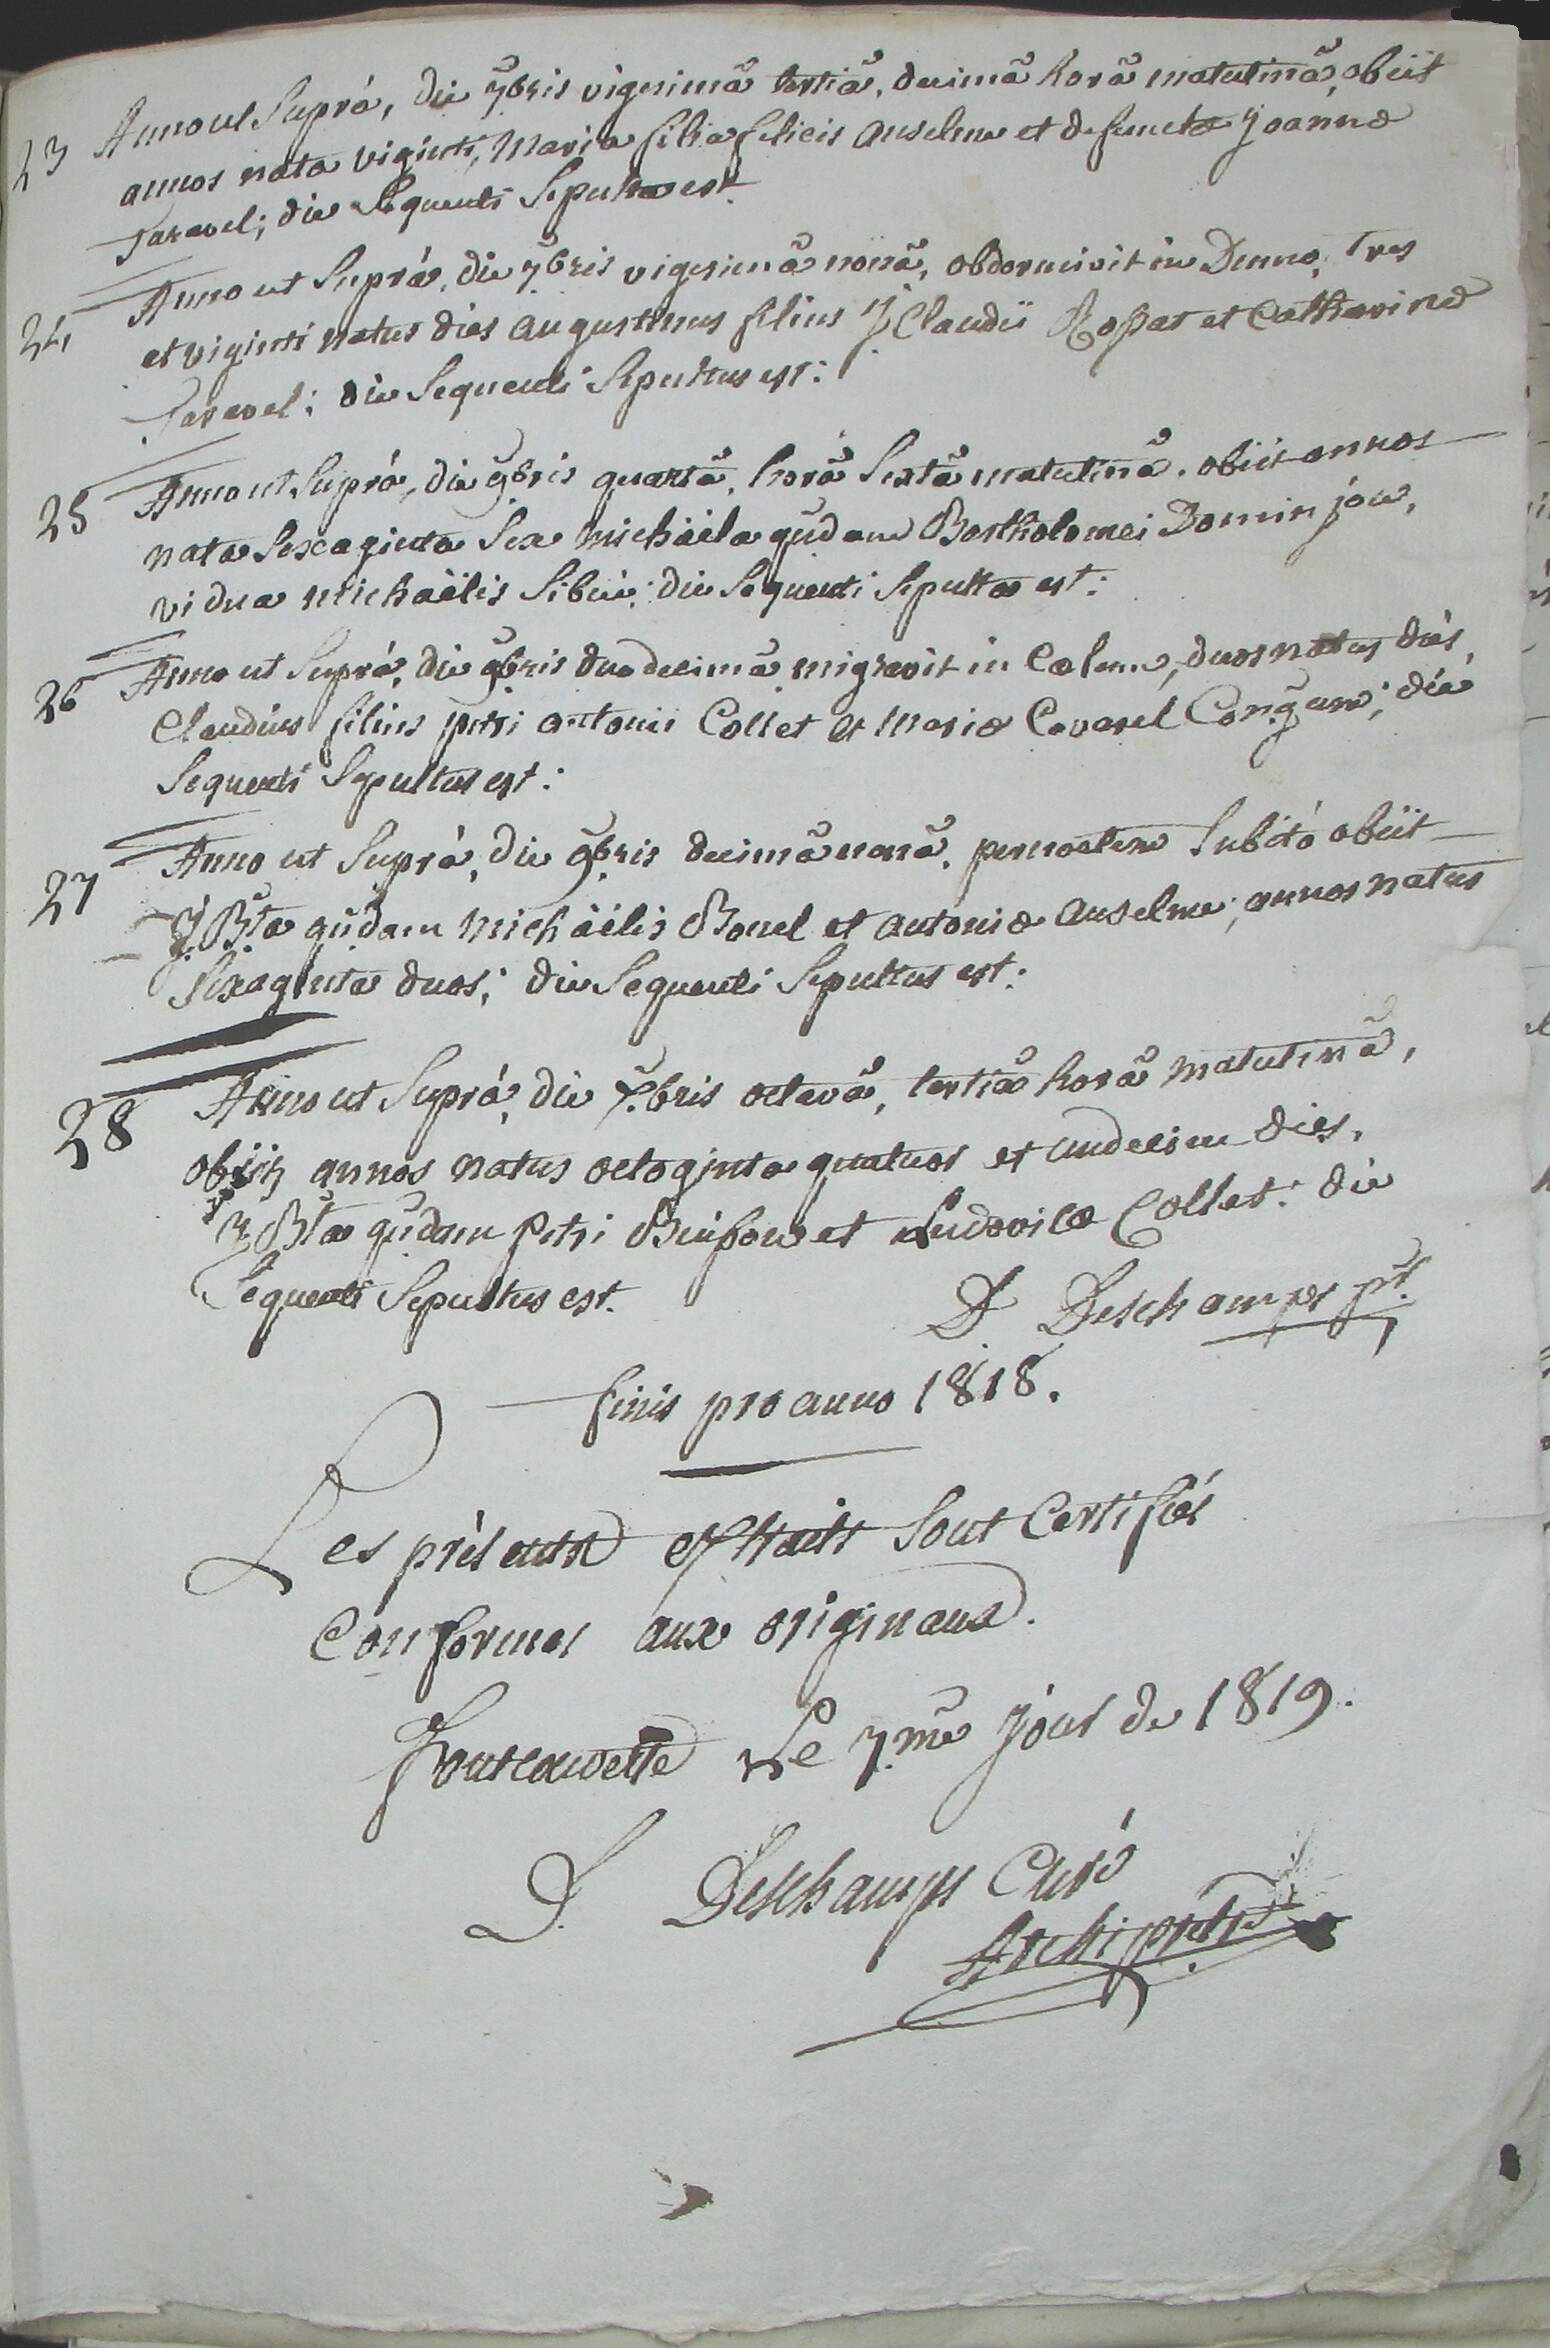 23 Anno ut Suprá, die 7bris vigesimâ tertiâ, decimâ horâ matutinâ, obiit
annos nata viginti, Maria filia felicis anselme et defunctæ Joannæ
Taravel; die Sequenti Sepulta est.
24 Anno ut Suprá, die 7bris vigesimâ nonâ, obdormivit in Dnno, tres
et viginti natus dies augustinus filius J. Claudii Rossat et Catharinæ
Taravel; die Sequenti Sepultus est:
25 Anno ut Suprá, die 9bris quartâ, horâ Sextâ matutinâ, obiit annos
nata Sexaginta Sex Michaéla qūdam Bartholomei Dominjon,
vidua michaëlis Sibué; die Sequenti Sepulta est:
26 Anno ut Suprá, die 9bris duodecimâ migravit in Cælum, duos natus dies,
Claudius filius petri antonii Collet et Mariæ Cavarel Conjgum; die
Sequenti Sepultus est:
27 Anno ut Suprá, die 9bris decimâ nonâ, per noctem Subitó obiit
J. Bta qūdam Michäelis Bonel et antoniæ anselme; annos natus
Sexaginta duos; die Sequenti Sepultus est:
28 Anno ut Suprá, die X.bris octavâ, tertiâ horâ matutinâ,
obiit annos natus octoginta quatuor et undecim dies,
J. Bta qūdam Petri Buisson et Ludovicæ Collet: die
Sequenti Sepultus est.
D. Deschamps pt.
finis pro anno 1818.
Les présents extraits Sont Certifiés
Conformes aux originaux.
Fontcouverte Le 7.me jour de 1819.
D. Deschamps Curé
Archiprêtre